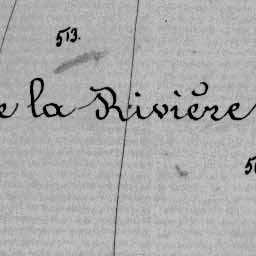 513.
la Rivière